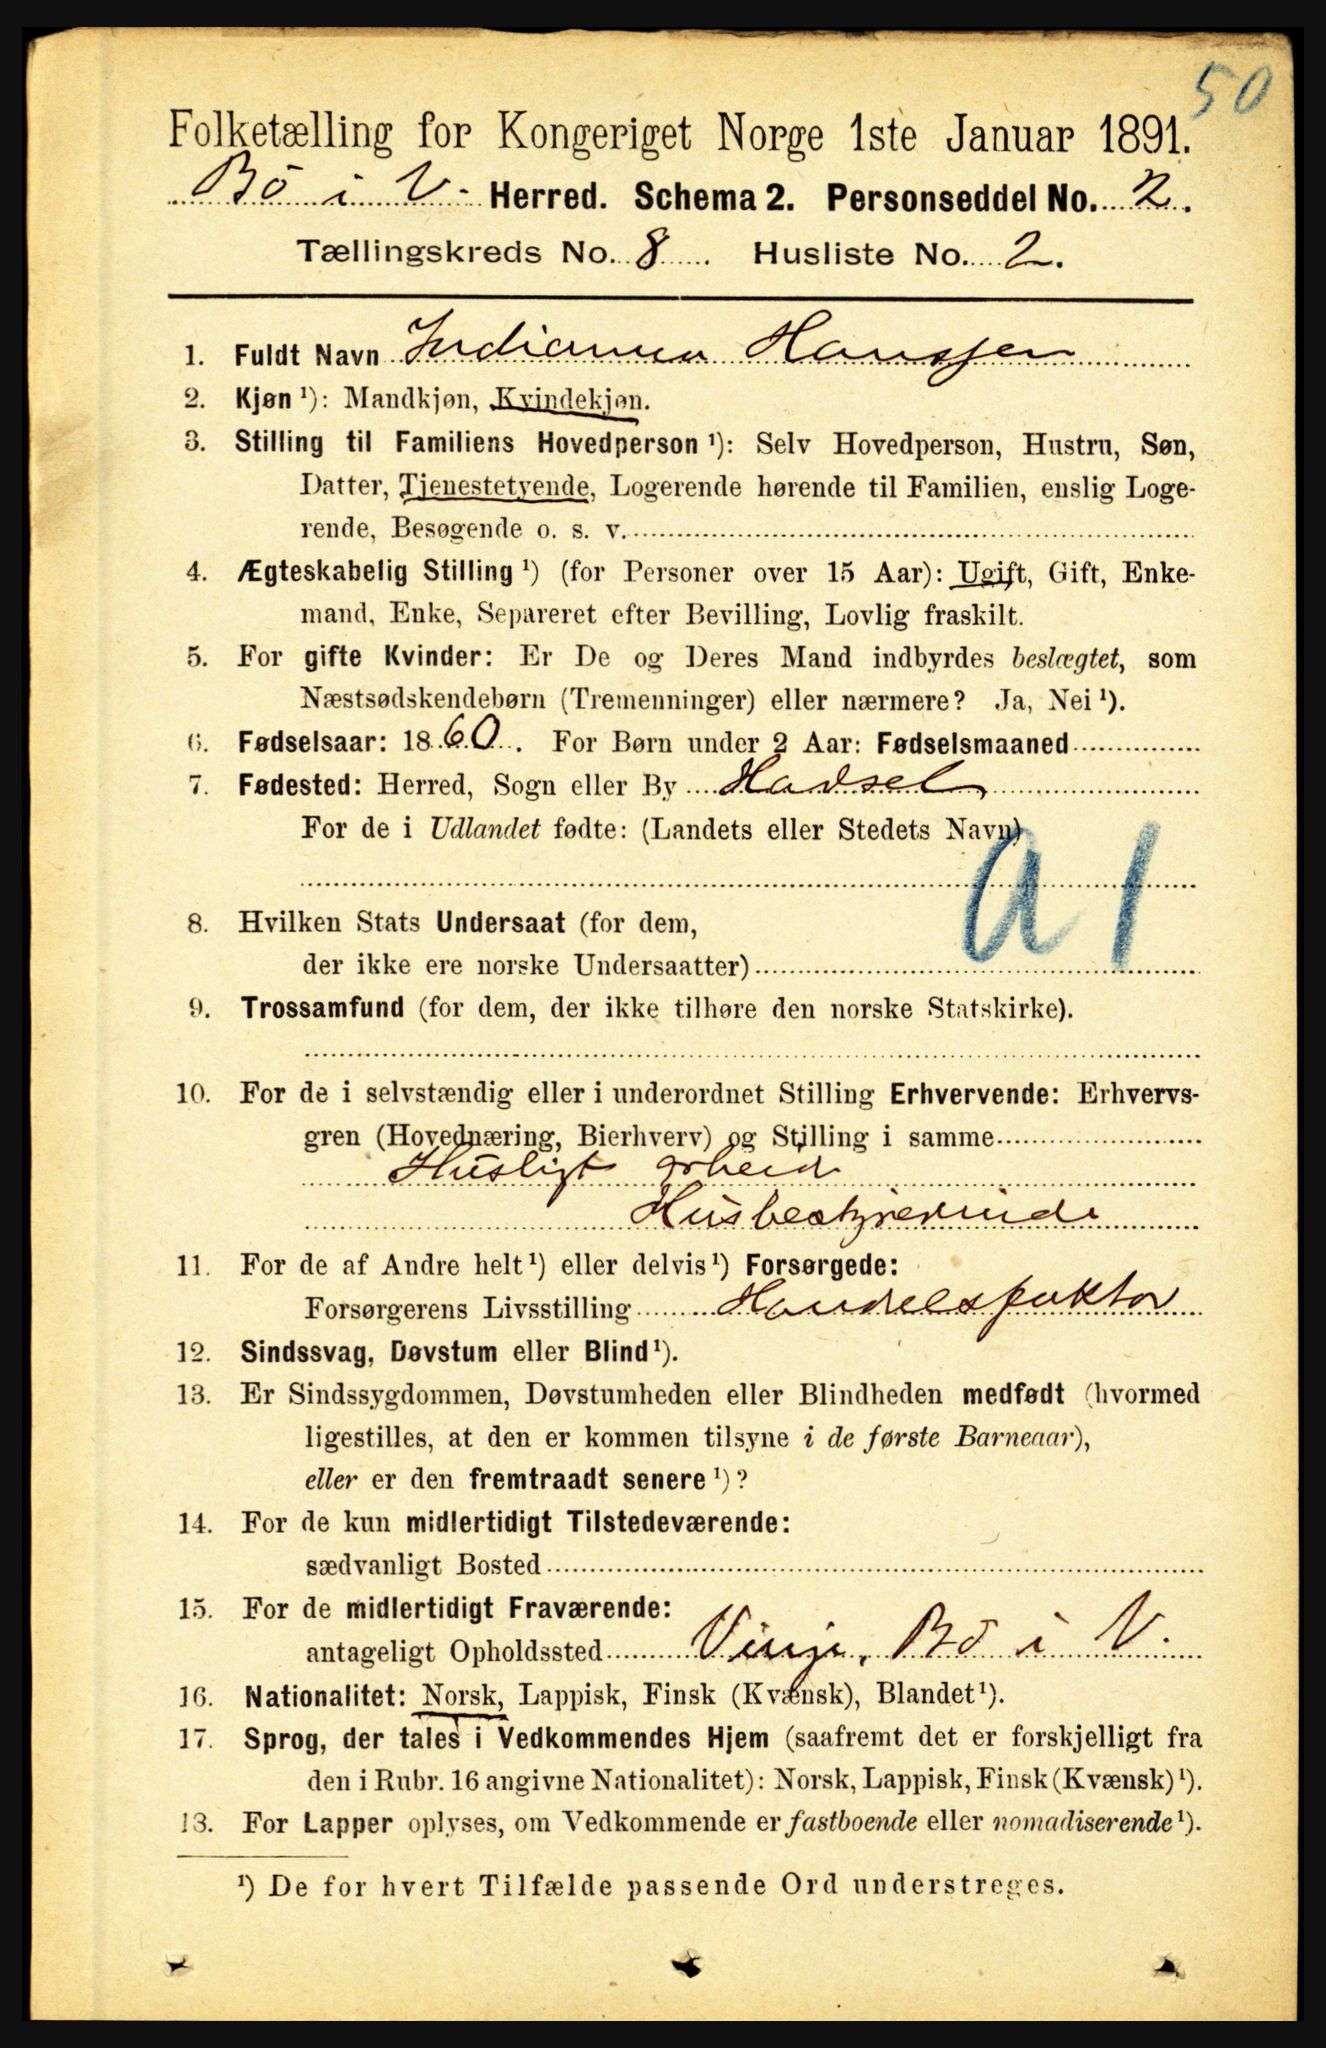 50
Folketælling for Kongeriget Norge 1ste Januar 1891.
Bö i V. Herred. Schema 2. Personseddel No. 2.
Tællingskreds No. 8 Husliste No. 2.
1. Fuldt Navn Indianna Hanssen
2. Kjøn ¹): Mandkjøn, Kvindekjøn.
3. Stilling til Familiens Hovedperson ¹): Selv Hovedperson, Hustru, Søn,
Datter, Tjenestetyende, Logerende hørende til Familien, enslig Loge-
rende, Besøgende o. s. v.
4. Ægteskabelig Stilling ¹) (for Personer over 15 Aar): Ugift, Gift, Enke-
mand, Enke, Separeret efter Bevilling, Lovlig fraskilt.
5. For gifte Kvinder: Er De og Deres Mand indbyrdes beslægtet, som
Næstsødskendebørn (Tremenninger) eller nærmere? Ja, Nei ¹).
6. Fødselsaar: 1860. For Børn under 2 Aar: Fødselsmaaned
7. Fødested: Herred, Sogn eller By Hadsel
For de i Udlandet fødte: (Landets eller Stedets Navn)
a 1
8. Hvilken Stats Undersaat (for dem,
der ikke ere norske Undersaatter)
9. Trossamfund (for dem, der ikke tilhøre den norske Statskirke).
10. For de i selvstændig eller i underordnet Stilling Erhvervende: Erhvervs-
gren (Hovednæring, Bierhverv) og Stilling i samme
Husligt arbeid
Husbestyrerinde
11. For de af Andre helt ¹) eller delvis ¹) Forsørgede:
Forsørgerens Livsstilling Handelsfaktor
12. Sindssvag, Døvstum eller Blind ¹).
13. Er Sindssygdommen, Døvstumheden eller Blindheden medfødt (hvormed
ligestilles, at den er kommen tilsyne i de første Barneaar),
eller er den fremtraadt senere ¹)?
14. For de kun midlertidigt Tilstedeværende:
sædvanligt Bosted
15. For de midlertidigt Fraværende:
antageligt Opholdssted Vinje, Bö i V.
16. Nationalitet: Norsk, Lappisk, Finsk (Kvænsk), Blandet ¹).
17. Sprog, der tales i Vedkommendes Hjem (saafremt det er forskjelligt fra
den i Rubr. 16 angivne Nationalitet): Norsk, Lappisk, Finsk (Kvænsk) ¹).
18. For Lapper oplyses, om Vedkommende er fastboende eller nomadiserende ¹).
¹) De for hvert Tilfælde passende Ord understreges.